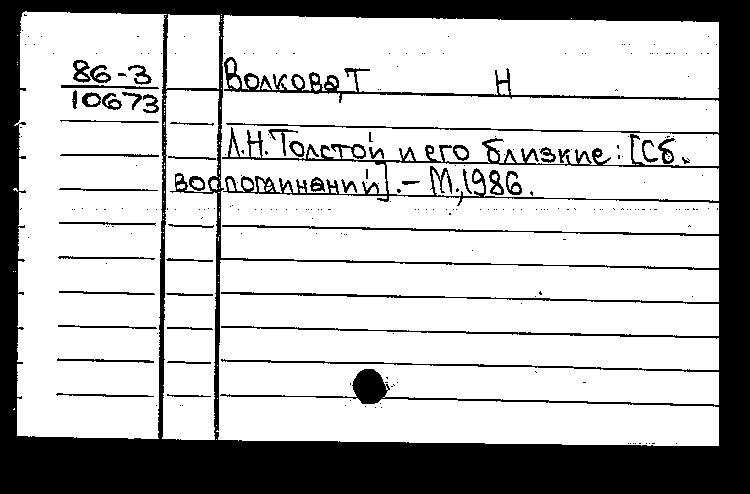 86-3 Волкова, Т Н
10673
Л.Н. Толстой и его близкие: [Сб.
воспоминаний]. - М., 1986.